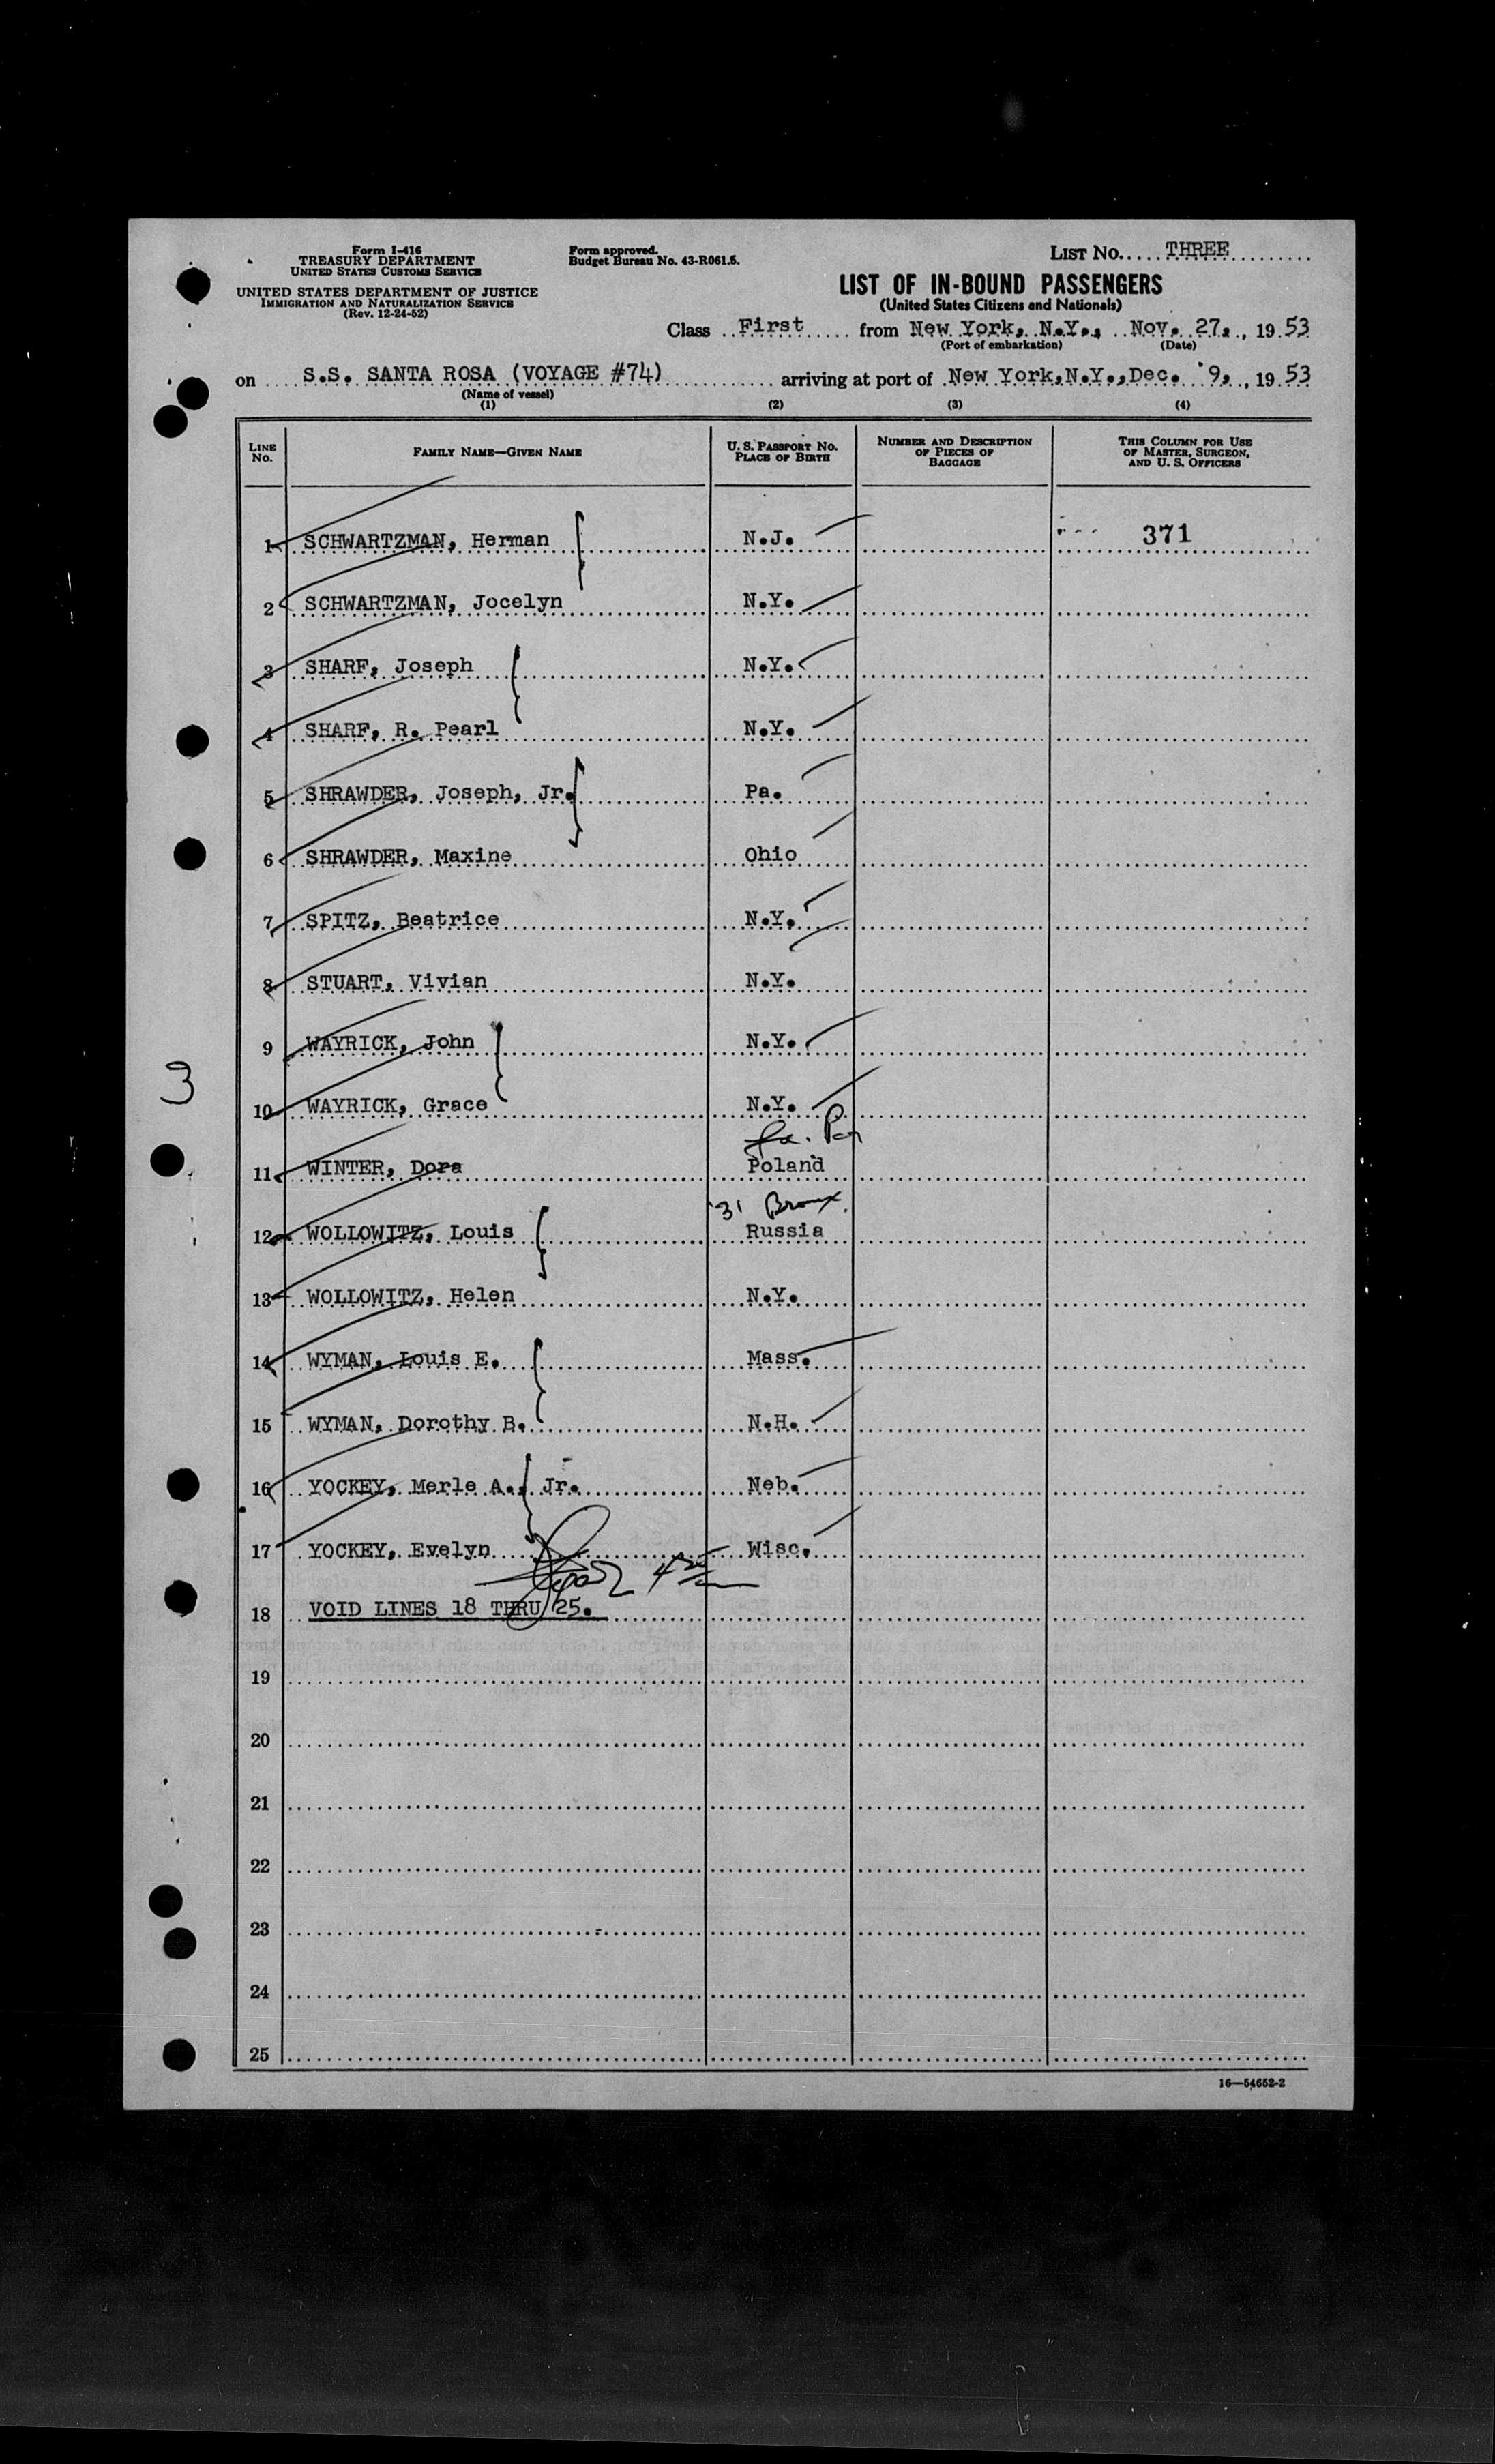 Form I-416
TREASURY DEPARTMENT
UNITED STATES CUSTOMS SERVICE
UNITED STATES DEPARTMENT OF JUSTICE
IMMIGRATION AND NATURALIZATION SERVICE
(Rev. 12-24-52)
Form approved.
Budget Bureau No. 43-R061.5.
LIST No. THREE
LIST OF IN-BOUND PASSENGERS
(United States Citizens and Nationals)
Class First from New York, N.Y., Nov. 27, , 19 53
(Port of embarkation) (Date)
on S.S. SANTA ROSA (VOYAGE #74) arriving at port of New York,N.Y.,Dec. 9, , 19 53
(Name of vessel)
(1) (2) (3) (4)
LINE No. FAMILY NAME—GIVEN NAME U. S. PASSPORT NO. PLACE OF BIRTH NUMBER AND DESCRIPTION OF PIECES OF BAGGAGE THIS COLUMN FOR USE OF MASTER, SURGEON, AND U. S. OFFICERS
1 SCHWARTZMAN, Herman N.J. 371
2 SCHWARTZMAN, Jocelyn N.Y.
3 SHARF, Joseph N.Y.
4 SHARF, R. Pearl N.Y.
5 SHRAWDER, Joseph, Jr. Pa.
6 SHRAWDER, Maxine Ohio
7 SPITZ, Beatrice N.Y.
8 STUART, Vivian N.Y.
9 WAYRICK, John N.Y.
3
10 WAYRICK, Grace N.Y.
11 WINTER, Dora Poland
'31 Bronx
12 WOLLOWITZ, Louis Russia
13 WOLLOWITZ, Helen N.Y.
14 WYMAN, Louis E. Mass.
15 WYMAN, Dorothy B. N.H.
16 YOCKEY, Merle A., Jr. Neb.
17 YOCKEY, Evelyn Wisc.
18 VOID LINES 18 THRU 25.
19
20
21
22
23
24
25
16—54652-2